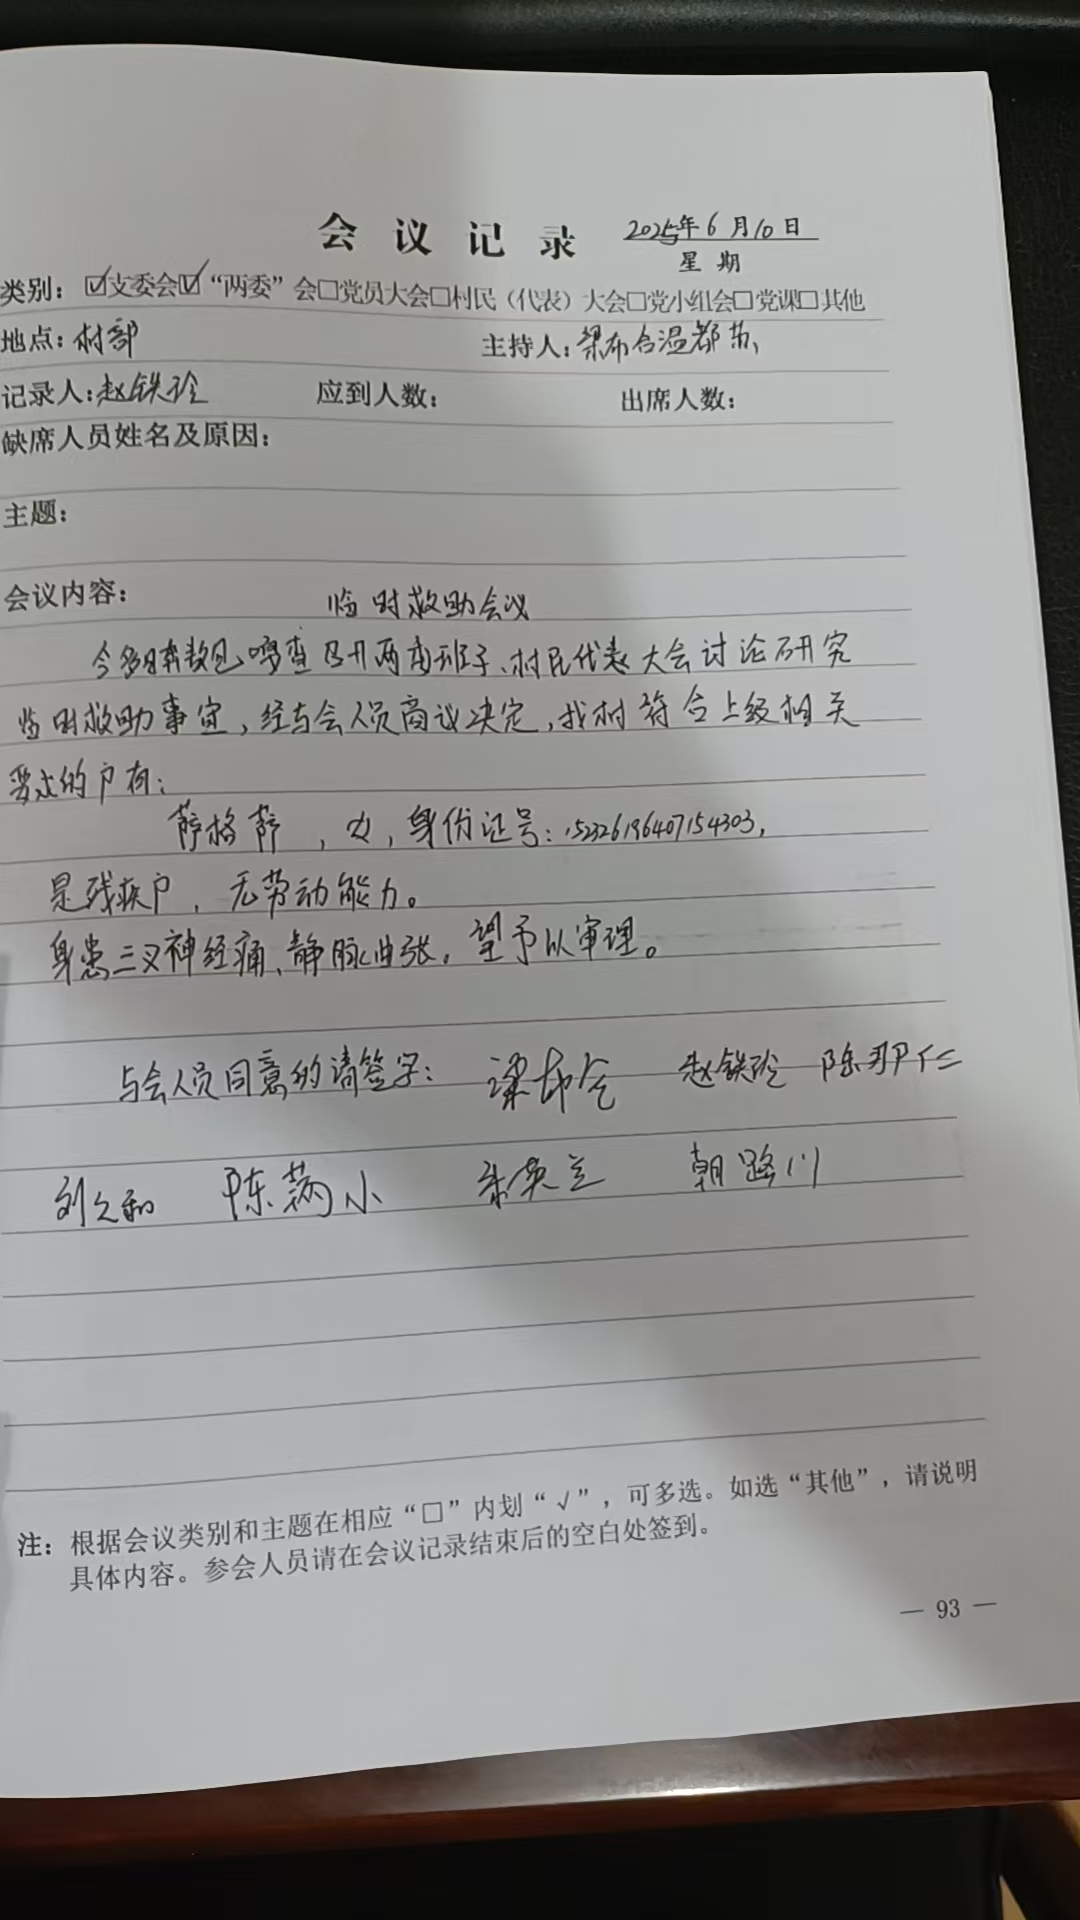 会议记录 2025年6月10日
星期
类别：☑支委会☑“两委”会□党员大会□村民（代表）大会□党小组会□党课□其他
地点：村部 主持人：梁布合温都苏
记录人：赵铁玲 应到人数： 出席人数：
缺席人员姓名及原因：
主题：
会议内容： 临时救助会议
召开两委班子、村民代表大会讨论研究
临时救助事宜，经与会人员商议决定，我村符合上级相关
要求的户有：
萨格萨，女，身份证号：152326196407154303，
是残疾户，无劳动能力。
身患三叉神经痛、静脉曲张，望予以审理。
与会人员同意的请签字： 梁布仓 赵铁玲 陈那仁
陈满小 朝路川
注：根据会议类别和主题在相应“□”内划“√”，可多选。如选“其他”，请说明
具体内容。参会人员请在会议记录结束后的空白处签到。
— 93 —